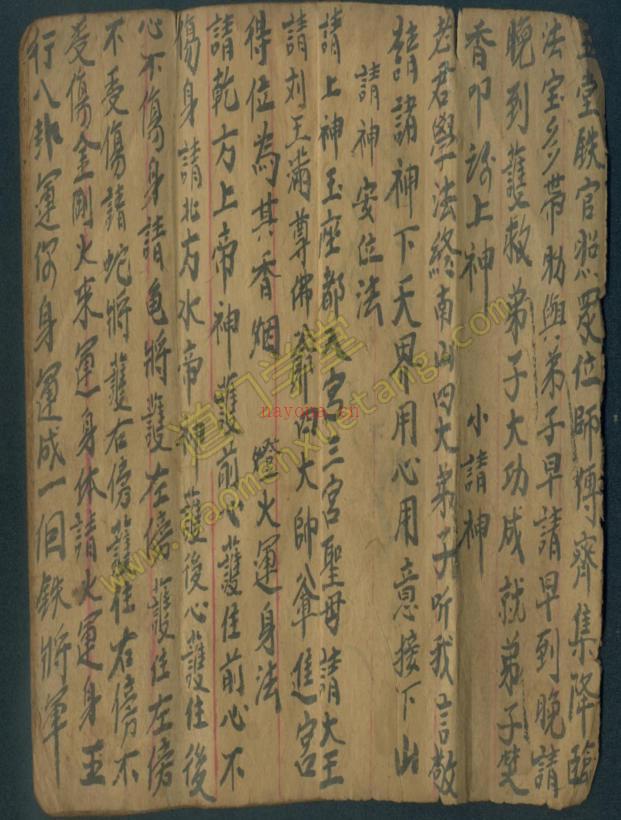 玉堂鉄官熙眾位師愽齊集降臨
法宝多帯助與弟子早請早到晚請
晚到護救弟子大功成就弟子焚
香叩許上神
小請神
老君學法終南山四大弟子听我言敬
請諸神下天界用心用意接下山
請神安位法
請上神玉座都天宮三宮聖母請大王
請刘王滿尊佛爺四大帥爺進宮
得位為其香烟
燈火運身法
請乾方上帝神護前心護住前心不
傷身請北方水帝神護後心護住後
心不傷身請龟將護左傍護住左傍
不受傷請蛇將護右傍護住右傍不
受傷金剛火来運身体請火運身五
行八卦運你身運成一個鉄將軍
道门学堂
www.daomenxuetang.com
nayona.cn